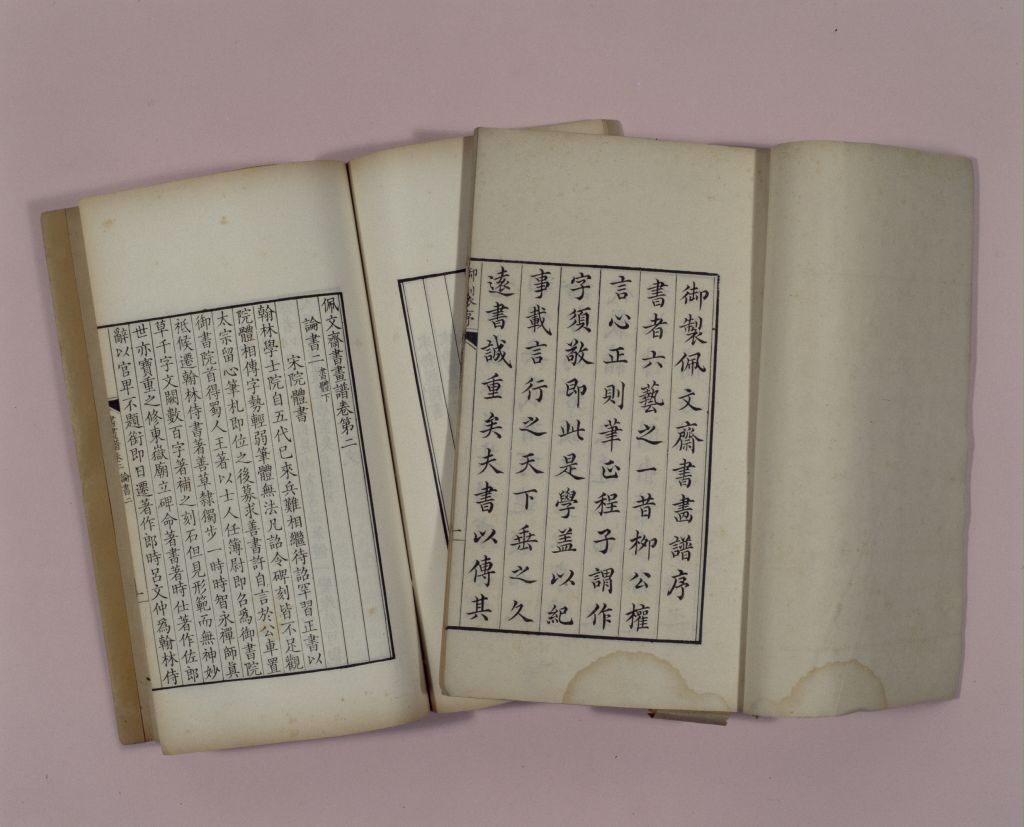 御製佩文齋書畫譜序
書者六藝之一昔栁公權
言心正則筆正程子謂作
字須敬即此是學盖以紀
事載言行之天下垂之久
逺書誠重矣夫書以傳其
御製序
二
佩文齋書畫譜卷第二
論書二 書體下
宋院體書
翰林學士院自五代已來兵難相繼待詔罕習正書以
院體相傳字勢輕弱筆體無法凡詔令碑刻皆不足觀
太宗留心筆札即位之後募求善書許自言於公車置
御書院首得蜀人王著以士人任簿尉即召為御書院
祗候遷翰林侍書著善草隸獨步一時時智永禪師真
草千字文闕數百字著補之刻石但見形範而無神妙
世亦寶重之修東嶽廟立碑命著書著時仕著作佐郎
辭以官卑不題銜即日遷著作郎時呂文仲為翰林侍
書畫譜卷二 論書二
一